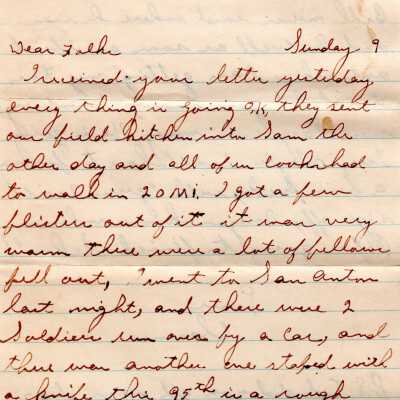 Dear Folks Sunday 9
I received your letter yesterday
every thing is going O.K, they sent
our field kitchen into Sam the
other day and all of us cooks had
to walk in 20 MI. I got a few
blisters out of it it was very
warm there were a lot of fellows
fell out, I went to San Anton
last night, and there were 2
Soldiers run over by a car, and
there was another one staped with
a knife this 95th is a rough